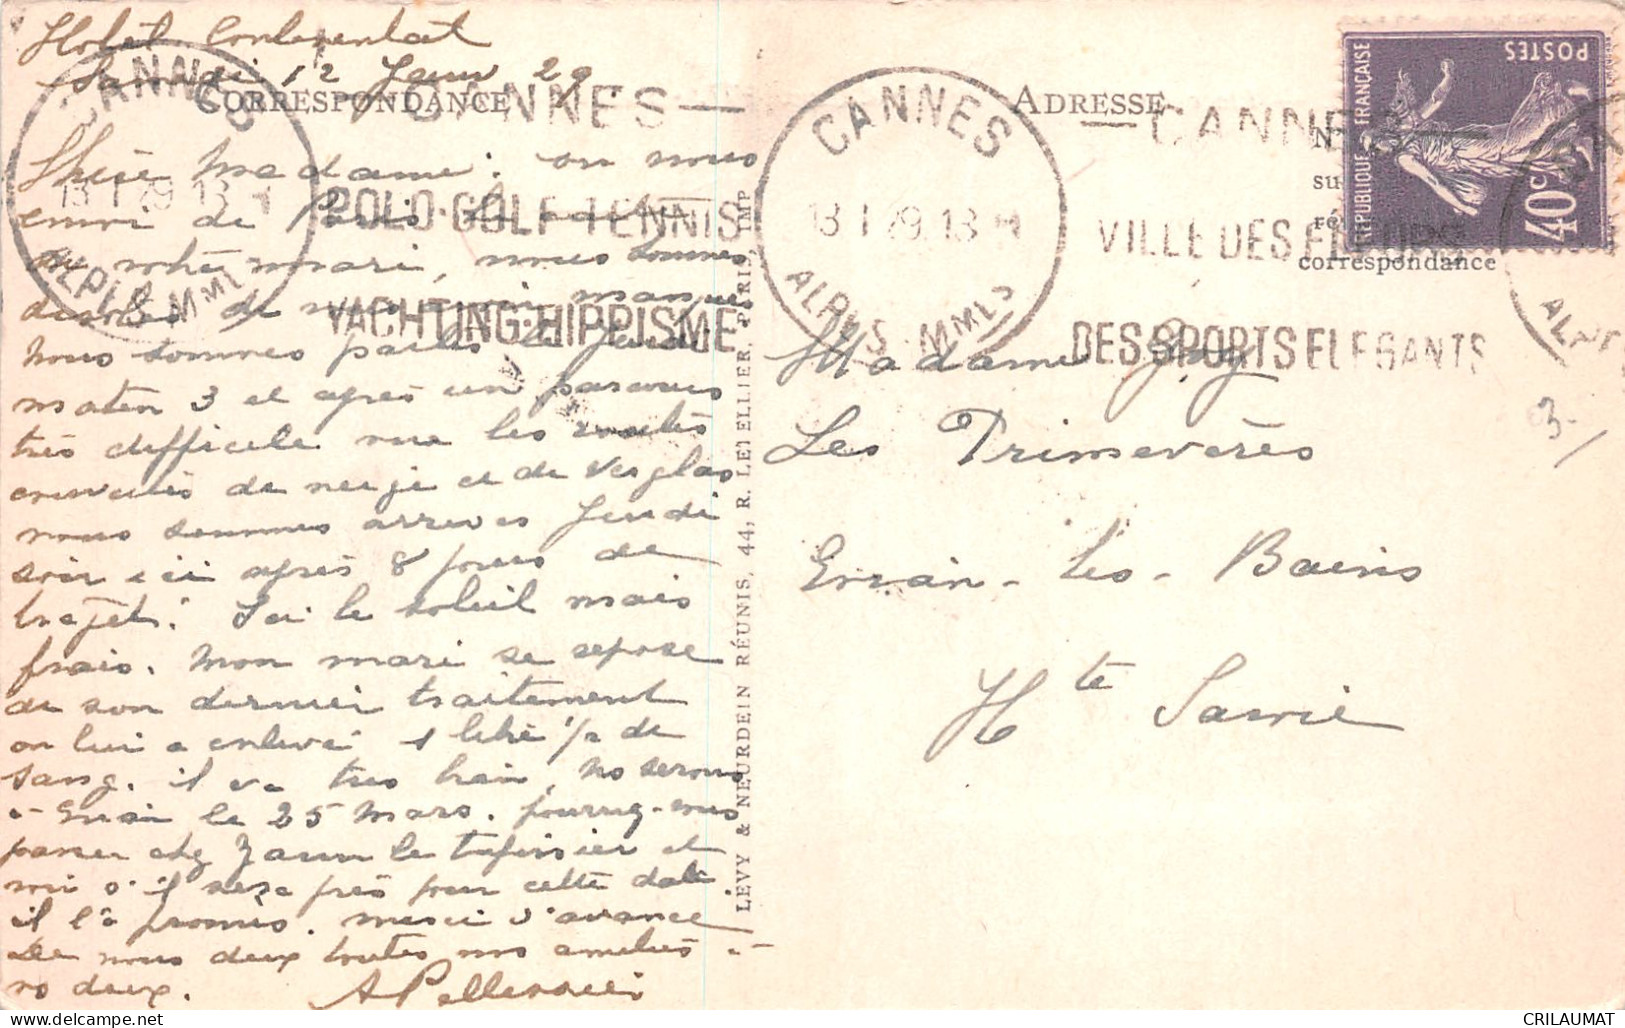 Hotel Continental
Samedi 12 Janv 29
CORRESPONDANCE
Chère Madame: on nous
envoi de Paris la
de votre mari, nous sommes
de
Nous sommes partis le Jeudi
matin 3 et après un parcours
très difficile vue les routes
de neige et de Verglas
nous sommes arrivés Jeudi
soir ici après 8 jours de
trajet! Ici le soleil mais
frais. Mon mari se repose
de son dernier traitement
on lui a enlevé 1 1/2 de
sang. il va très bien, No serons
à Evian le 25 Mars. pourriez-vous
passer chez le tapissier et
voir s'il sera prés pour cette date
il l'à promis. merci d'avance
De nous deux toutes nos amitiés à
vo deux. A Pellerani
LEVY & NEURDEIN RÉUNIS, 44, R. LETELLIER, PARIS, IMP
CANNES
13 I 29 13
ALPES MMES
CANNES
POLO·GOLF·TENNIS
YACHTING·HIPPISME
CANNES
13 I 29 13
ALPES MMES
CANNES
VILLE DES FLEURS
DES SPORTS ELEGANTS
ADRESSE
correspondance
REPUBLIQUE FRANÇAISE
POSTES
40 c
Madame Jay
Les Primevères
Evian-les-Bains
Hte Savoie
3-/
CRILAUMAT